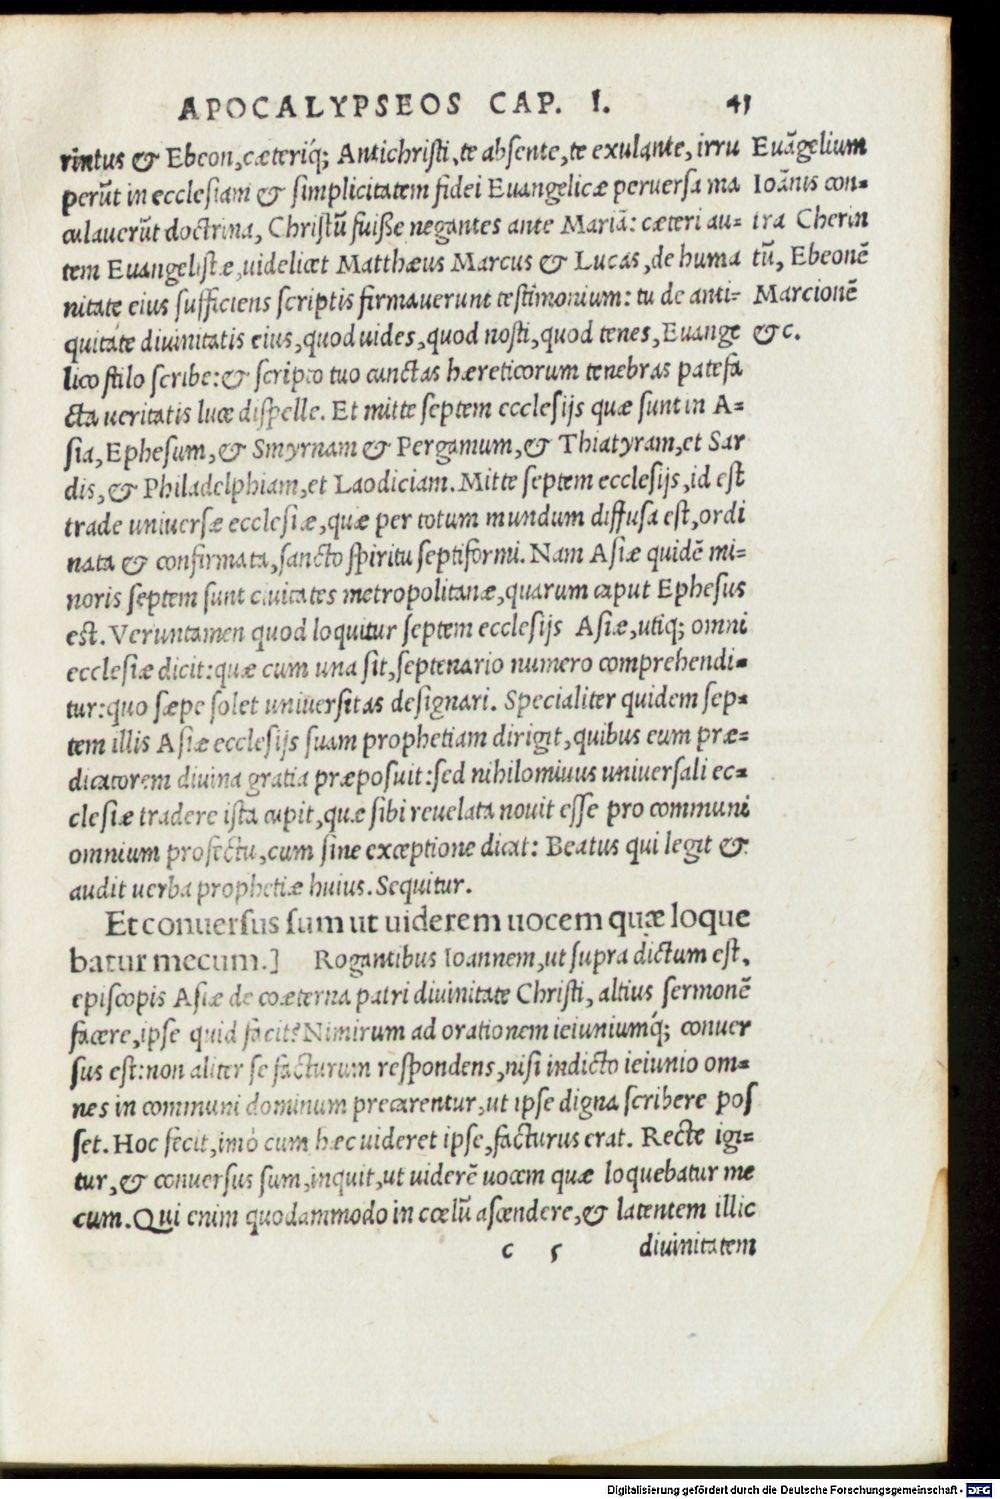 APOCALYPSEOS CAP. I. 41
rintus & Ebeon, cæteriq́; Antichristi, te absente, te exulante, irru
perũt in ecclesiam & simplicitatem fidei Euangelicæ peruersa ma
culauerũt doctrina, Christũ fuiße negantes ante Mariã: cæteri au-
tem Euangelistæ, uidelicet Matthæus Marcus & Lucas, de huma
nitate eius sufficiens scriptis firmauerunt testimonium: tu de anti-
quitate diuinitatis eius, quod uides, quod nosti, quod tenes, Euange
lico stilo scribe: & scripto tuo cunctas hæreticorum tenebras patefa
cta ueritatis luce dispelle. Et mitte septem ecclesijs quæ sunt in A-
sia, Ephesum, & Smyrnam & Pergamum, & Thiatyram, et Sar
dis, & Philadelphiam, et Laodiciam. Mitte septem ecclesijs, id est
trade uniuersæ ecclesiæ, quæ per totum mundum diffusa est, ordi
nata & confirmata, sancto spiritu septiformi. Nam Asiæ quidẽ mi-
noris septem sunt ciuitates metropolitanæ, quarum caput Ephesus
est. Veruntamen quod loquitur septem ecclesijs Asiæ, utiq; omni
ecclesiæ dicit: quæ cum una sit, septenario numero comprehendi-
tur: quo sæpe solet uniuersitas designari. Specialiter quidem sep-
tem illis Asiæ ecclesijs suam prophetiam dirigit, quibus eum præ-
dicatorem diuina gratia præposuit: sed nihilominus uniuersali ec-
clesiæ tradere ista cupit, quæ sibi reuelata nouit esse pro communi
omnium profectu, cum sine exceptione dicat: Beatus qui legit &
audit uerba prophetiæ huius. Sequitur.
Et conuersus sum ut uiderem uocem quæ loque
batur mecum.] Rogantibus Ioannem, ut supra dictum est,
episcopis Asiæ de coæterna patri diuinitate Christi, altius sermonẽ
facere, ipse quid facit? Nimirum ad orationem ieiuniumq́; conuer
sus est: non aliter se facturum respondens, nisi indicto ieiunio om-
nes in communi dominum precarentur, ut ipse digna scribere pos
set. Hoc fecit, imò cum hæc uideret ipse, facturus erat. Recte igi-
tur, & conuersus sum, inquit, ut uiderẽ uocem quæ loquebatur me
cum. Qui enim quodammodo in cœlũ ascendere, & latentem illic
c 5 diuinitatem
Euãgelium
Ioãnis con-
tra Cherin
tũ, Ebeonẽ
Marcionẽ
&c.
Digitalisierung gefördert durch die Deutsche Forschungsgemeinschaft - DFG